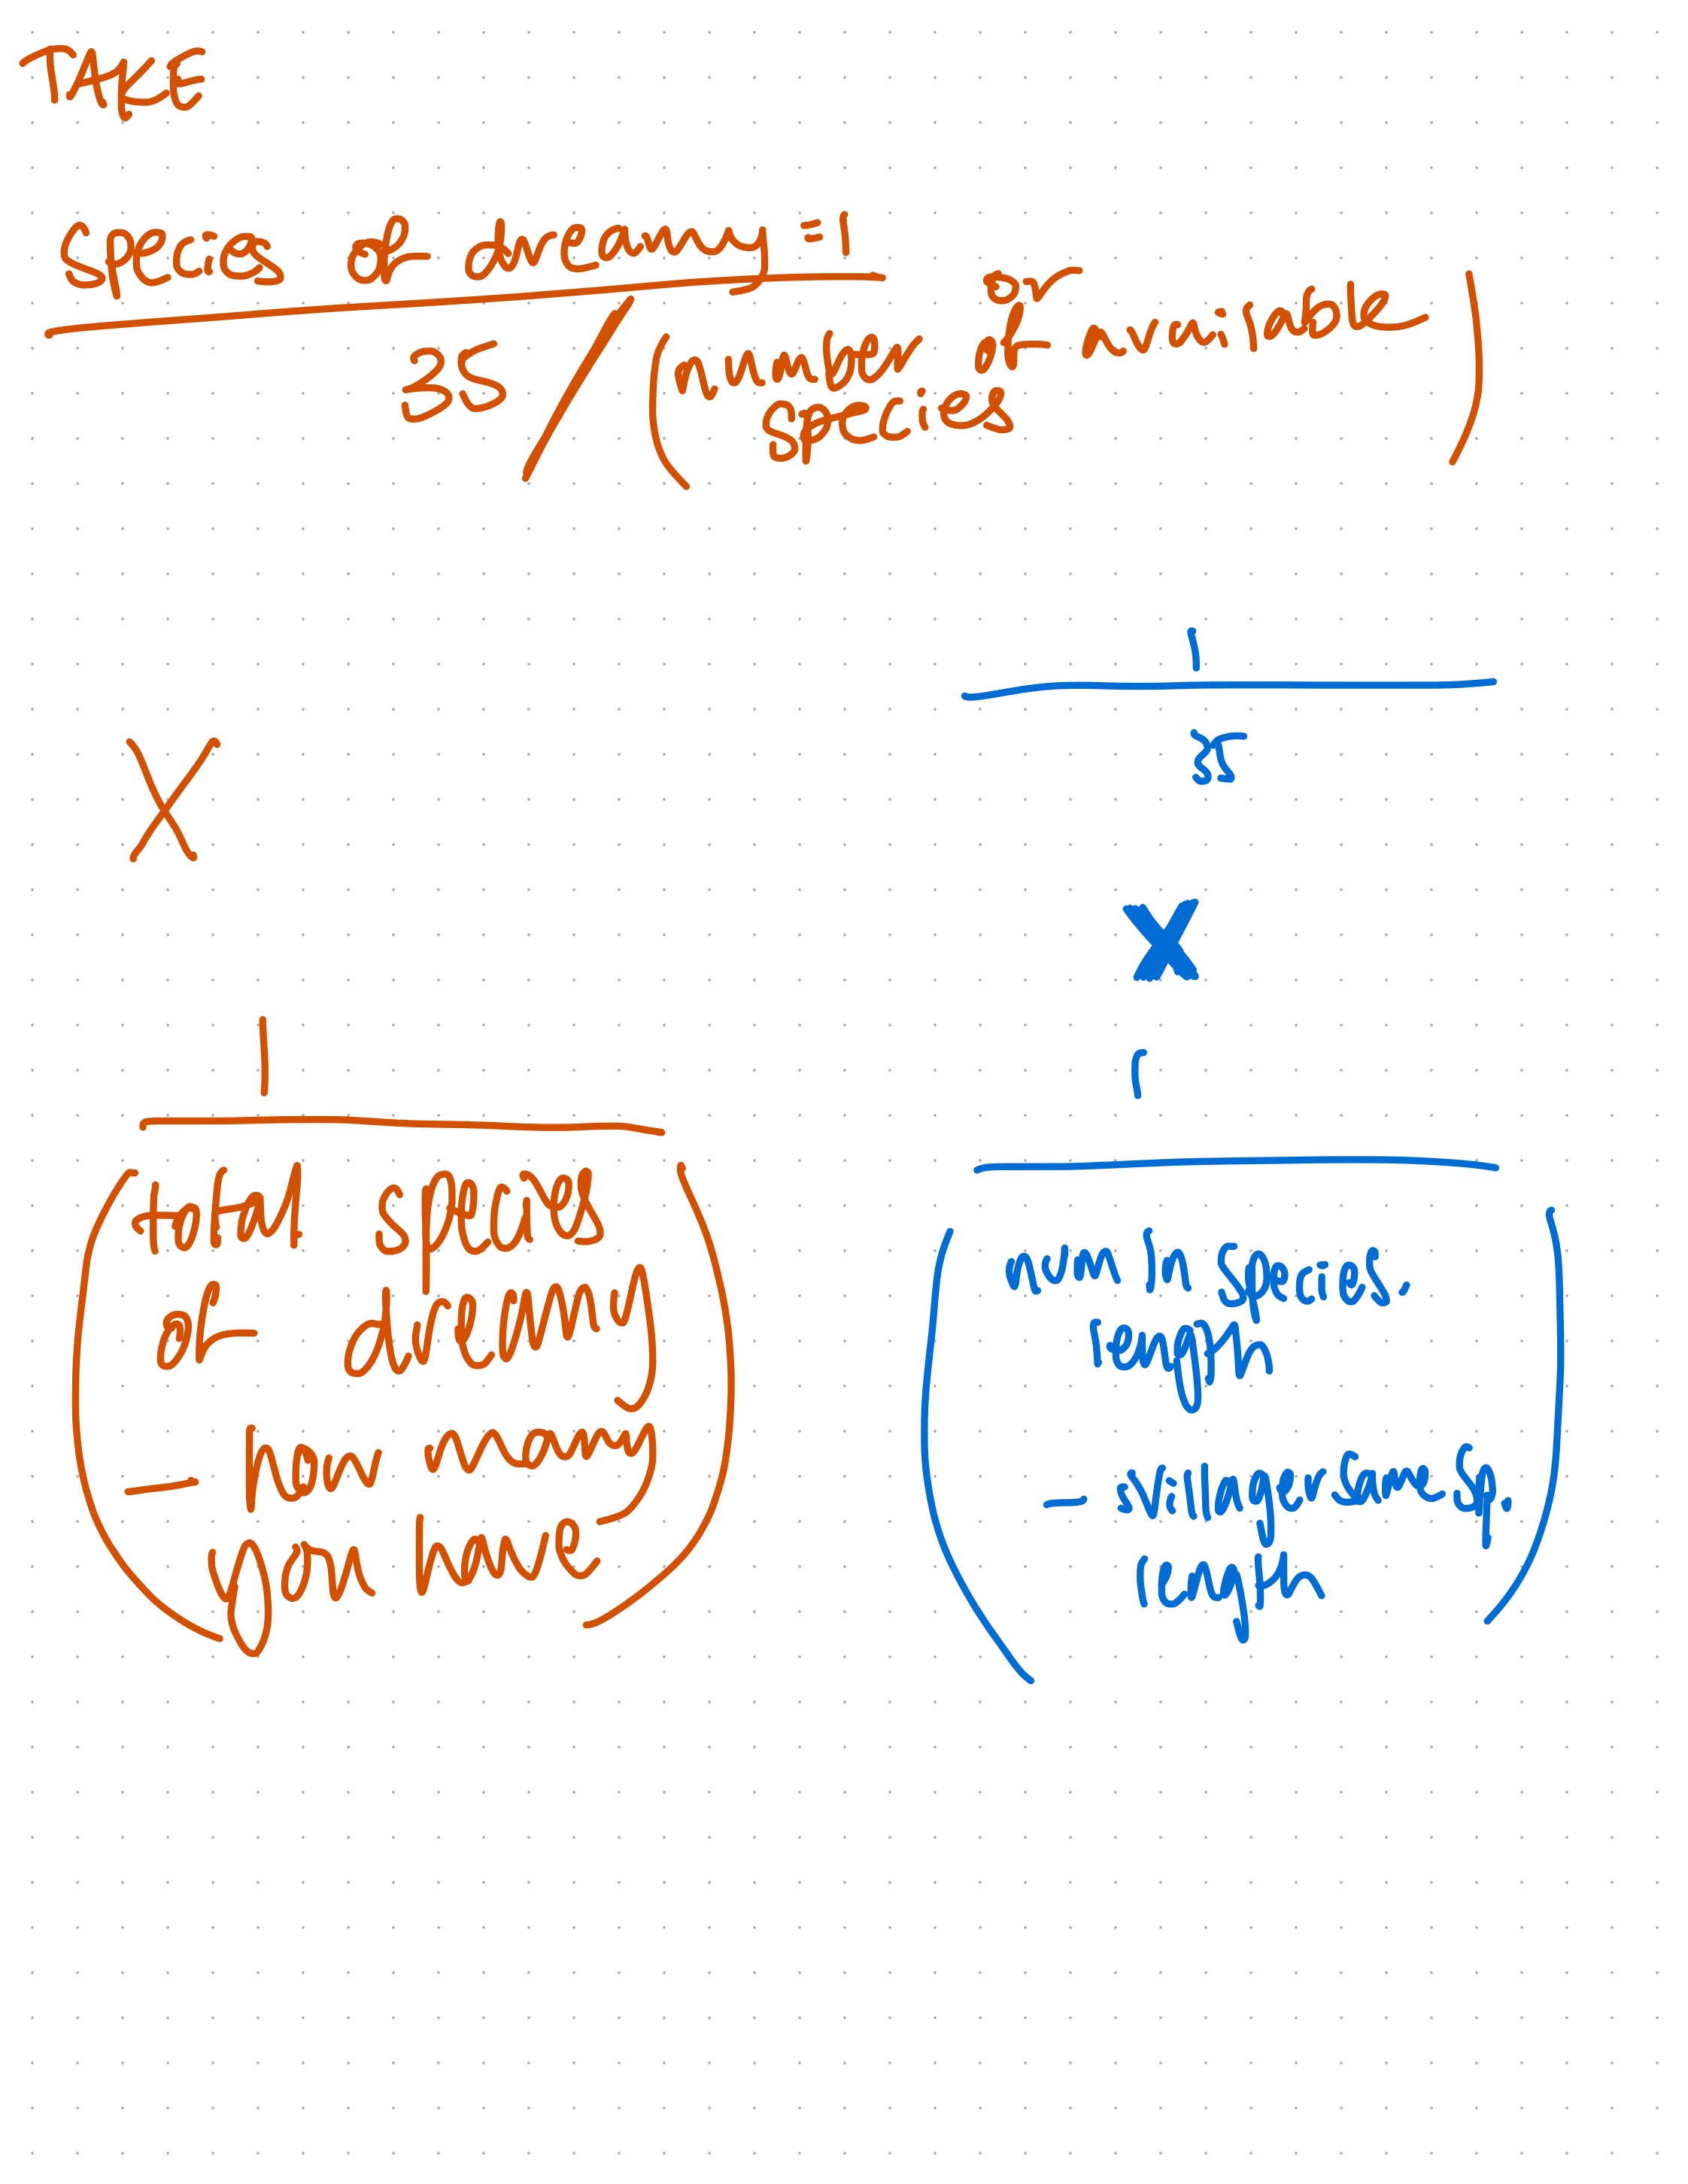 TAKE
Species of dreamy = 1
35 / (number of available
or
species)
1
35
X
X
1
1
(total species
of dreamy
- how many
you have)
(num in species.
length
- villagersSame.sp.
length)